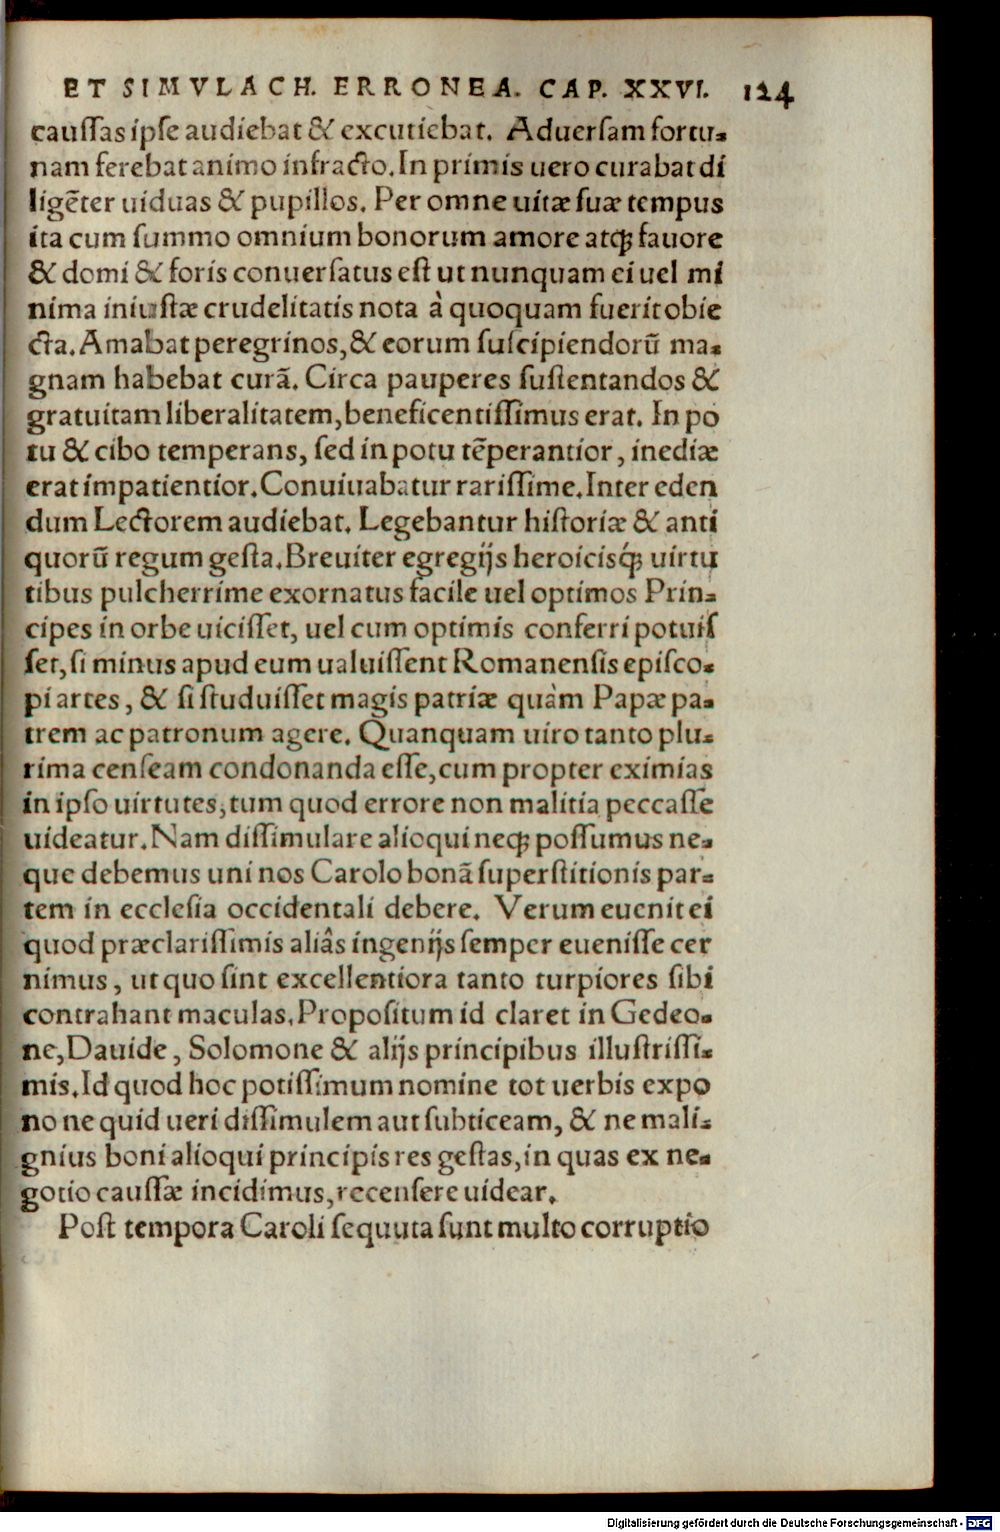 ET SIMVLACH. ERRONEA. CAP. XXVI. 124
caussas ipse audiebat & excutiebat. Aduersam fortu-
nam ferebat animo infracto. In primis uero curabat di
ligẽter uiduas & pupillos. Per omne uitæ suæ tempus
ita cum summo omnium bonorum amore atqꝫ fauore
& domi & foris conuersatus est ut nunquam ei uel mi
nima iniustæ crudelitatis nota à quoquam fuerit obie
cta. Amabat peregrinos, & eorum suscipiendorũ ma-
gnam habebat curã. Circa pauperes sustentandos &
gratuitam liberalitatem, beneficentissimus erat. In po
tu & cibo temperans, sed in potu tẽperantior, inediæ
erat impatientior. Conuiuabatur rarissime. Inter eden
dum Lectorem audiebat. Legebantur historiæ & anti
quorũ regum gesta. Breuiter egregijs heroicisq́ꝫ uirtu
tibus pulcherrime exornatus facile uel optimos Prin-
cipes in orbe uicisset, uel cum optimis conferri potuis
set, si minus apud eum ualuissent Romanensis episco-
pi artes, & si studuisset magis patriæ quàm Papæ pa-
trem ac patronum agere. Quanquam uiro tanto plu-
rima censeam condonanda esse, cum propter eximias
in ipso uirtutes, tum quod errore non malitia peccasse
uideatur. Nam dissimulare alioqui neqꝫ possumus ne-
que debemus uni nos Carolo bonã superstitionis par-
tem in ecclesia occidentali debere. Verum euenit ei
quod præclarissimis aliâs ingenijs semper euenisse cer
nimus, ut quo sint excellentiora tanto turpiores sibi
contrahant maculas. Propositum id claret in Gedeo-
ne, Dauide, Solomone & alijs principibus illustrissi-
mis. Id quod hoc potissimum nomine tot uerbis expo
no ne quid ueri dissimulem aut subticeam, & ne mali-
gnius boni alioqui principis res gestas, in quas ex ne-
gotio caussæ incidimus, recensere uidear.
Post tempora Caroli sequuta sunt multo corruptio
Digitalisierung gefördert durch die Deutsche Forschungsgemeinschaft - DFG